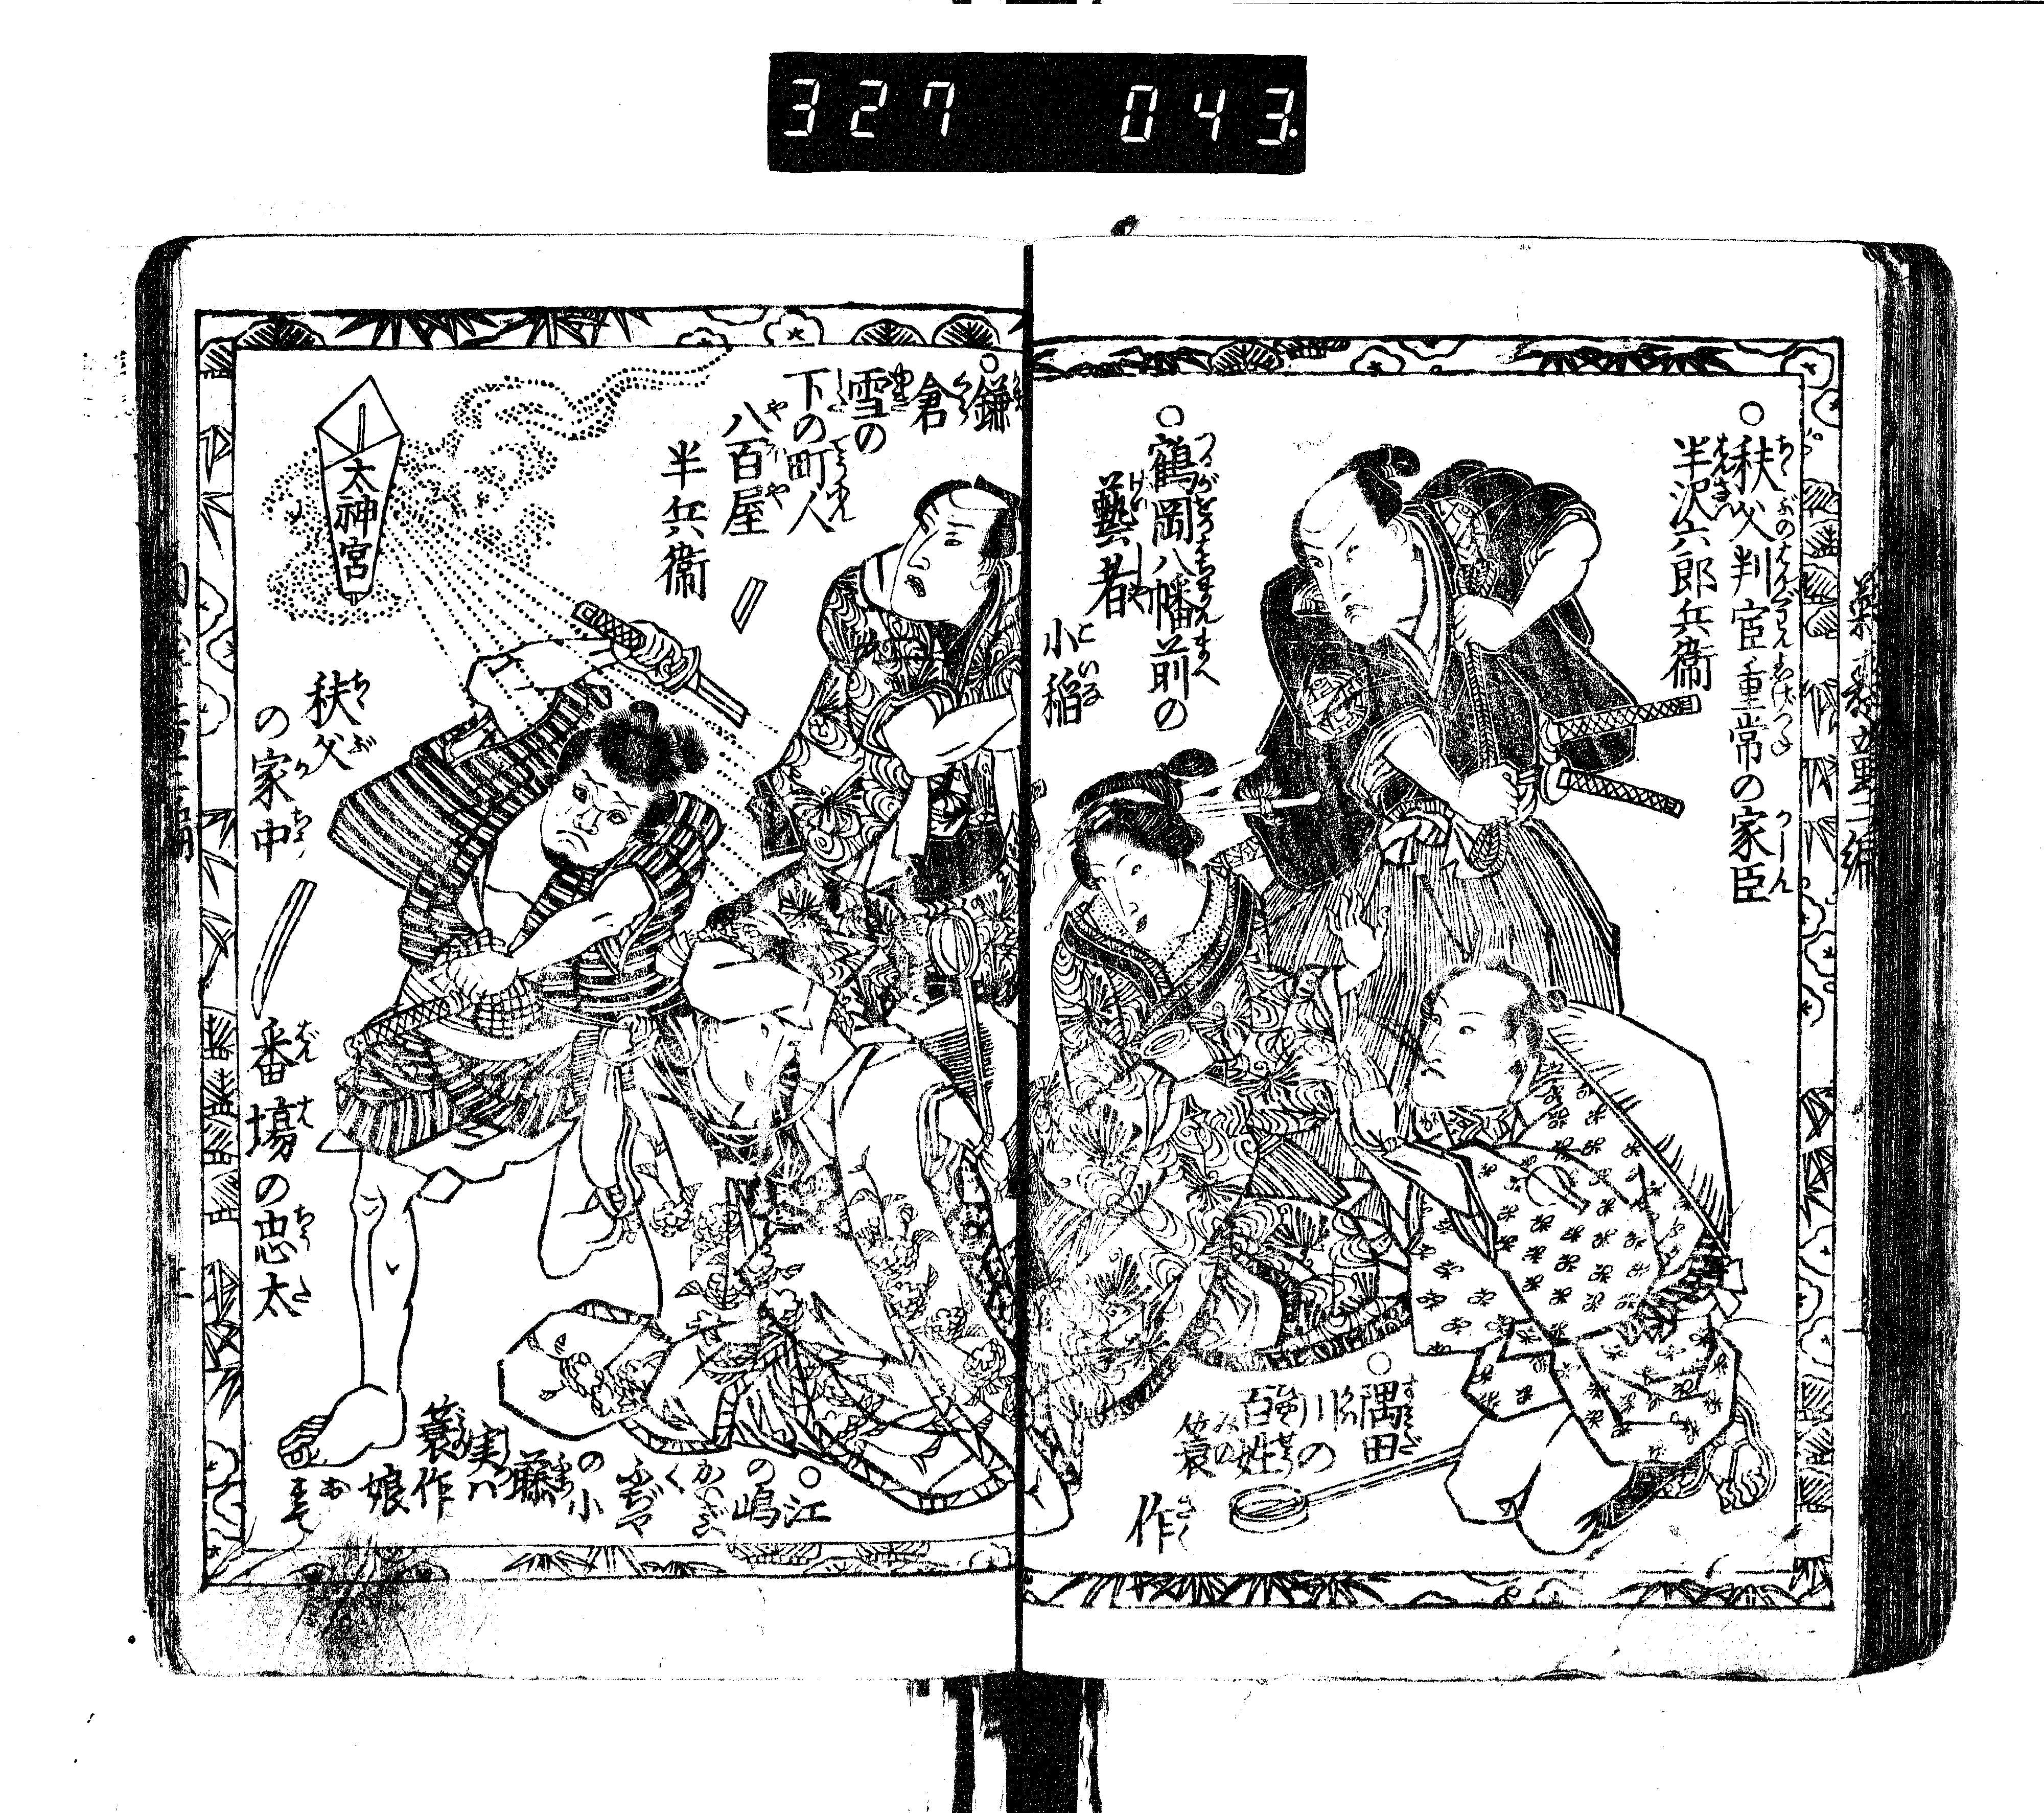 327 043
○秩父判官重常の家臣
半沢六郎兵衞
○鶴岡八幡前の
藝者
小稲
○隅田
川の
百姓
簑
作
○鎌
倉
雪の
下の町人
八百屋
半兵衞
太神宮
秩父
の家中
番場の忠太
○江
の嶋
の小
藤
実ハ
簑作
娘